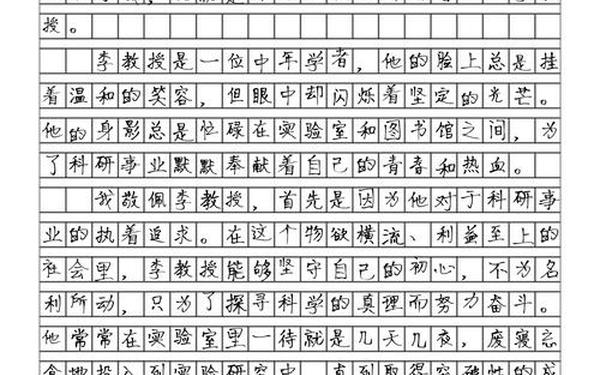 授。
李教授是一位中年学者，他的脸上总是挂
着温和的笑容，但眼中却闪烁着坚定的光芒。
他的身影总是忙碌在实验室和图书馆之间，为
了科研事业默默奉献着自己的青春和热血。
我敬佩李教授，首先是因为他对于科研事
业的执着追求。在这个物欲横流、利益至上的
社会里，李教授能够坚守自己的初心，不为名
利所动，只为了探寻科学的真理而努力奋斗。
他常常在实验室里一待就是几天几夜，废寝忘
食地投入到实验研究中，直到取得突破性的成